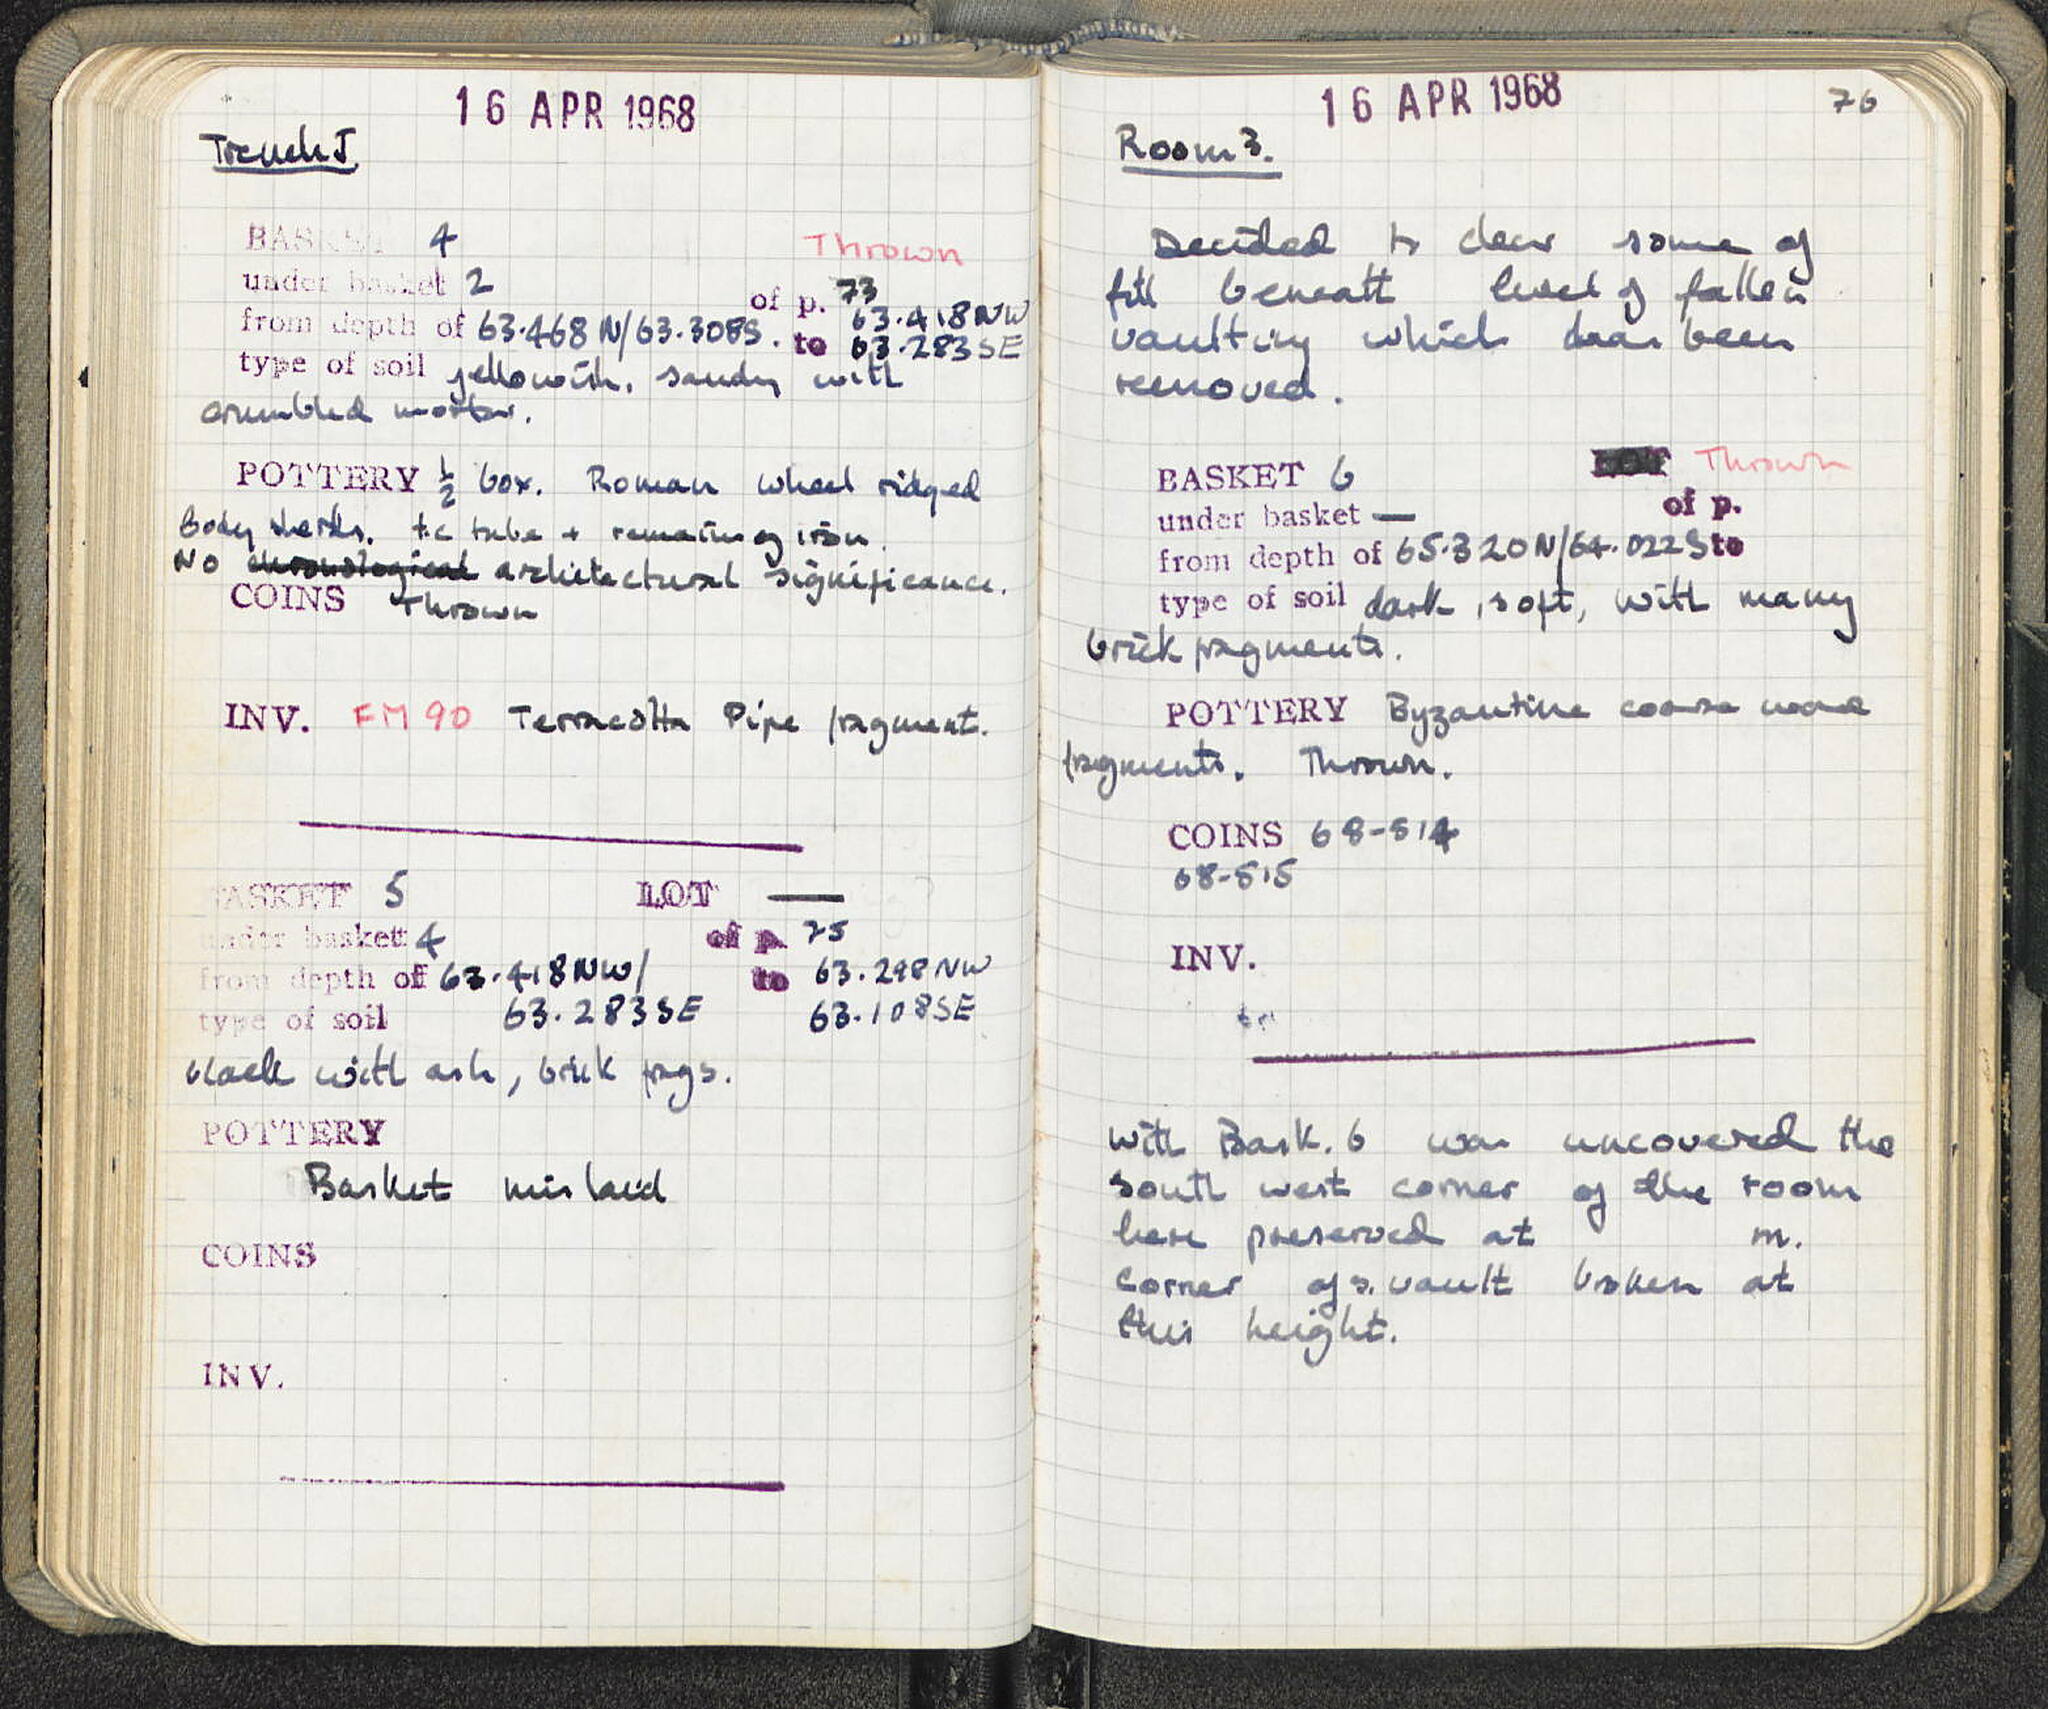 16 APR 1968
Trench J.
BASKET 4 Thrown
under basket 2 of p. 73
from depth of 63.468 N/63.308S. to 63.418NW
63.283SE
type of soil yellowish, sandy with
crumbled mortar.
POTTERY ½ box. Roman wheel ridged
body sherds. t.c tube + remains of iron.
No chronological architectural significance.
COINS Thrown
INV. FM 90 Terracotta Pipe fragment.
BASKET 5 LOT —
under basket 4 of p. 75
from depth of 63.418NW/ to 63.298NW
type of soil 63.283SE 63.108SE
black with ash, brick frags.
POTTERY
Basket mislaid
COINS
INV.
16 APR 1968
76
Room 3.
Decided to clear some of
fill beneath level of fallen
vaulting which has been
removed.
BASKET 6 LOT Thrown
under basket — of p.
from depth of 65.320N/64.022S to
type of soil dark, soft, with many
brick fragments.
POTTERY Byzantine coarse ware
fragments. Thrown.
COINS 68-514
68-515
INV.
With Bask. 6 was uncovered the
south west corner of the room
here preserved at m.
Corner of s. vault broken at
this height.